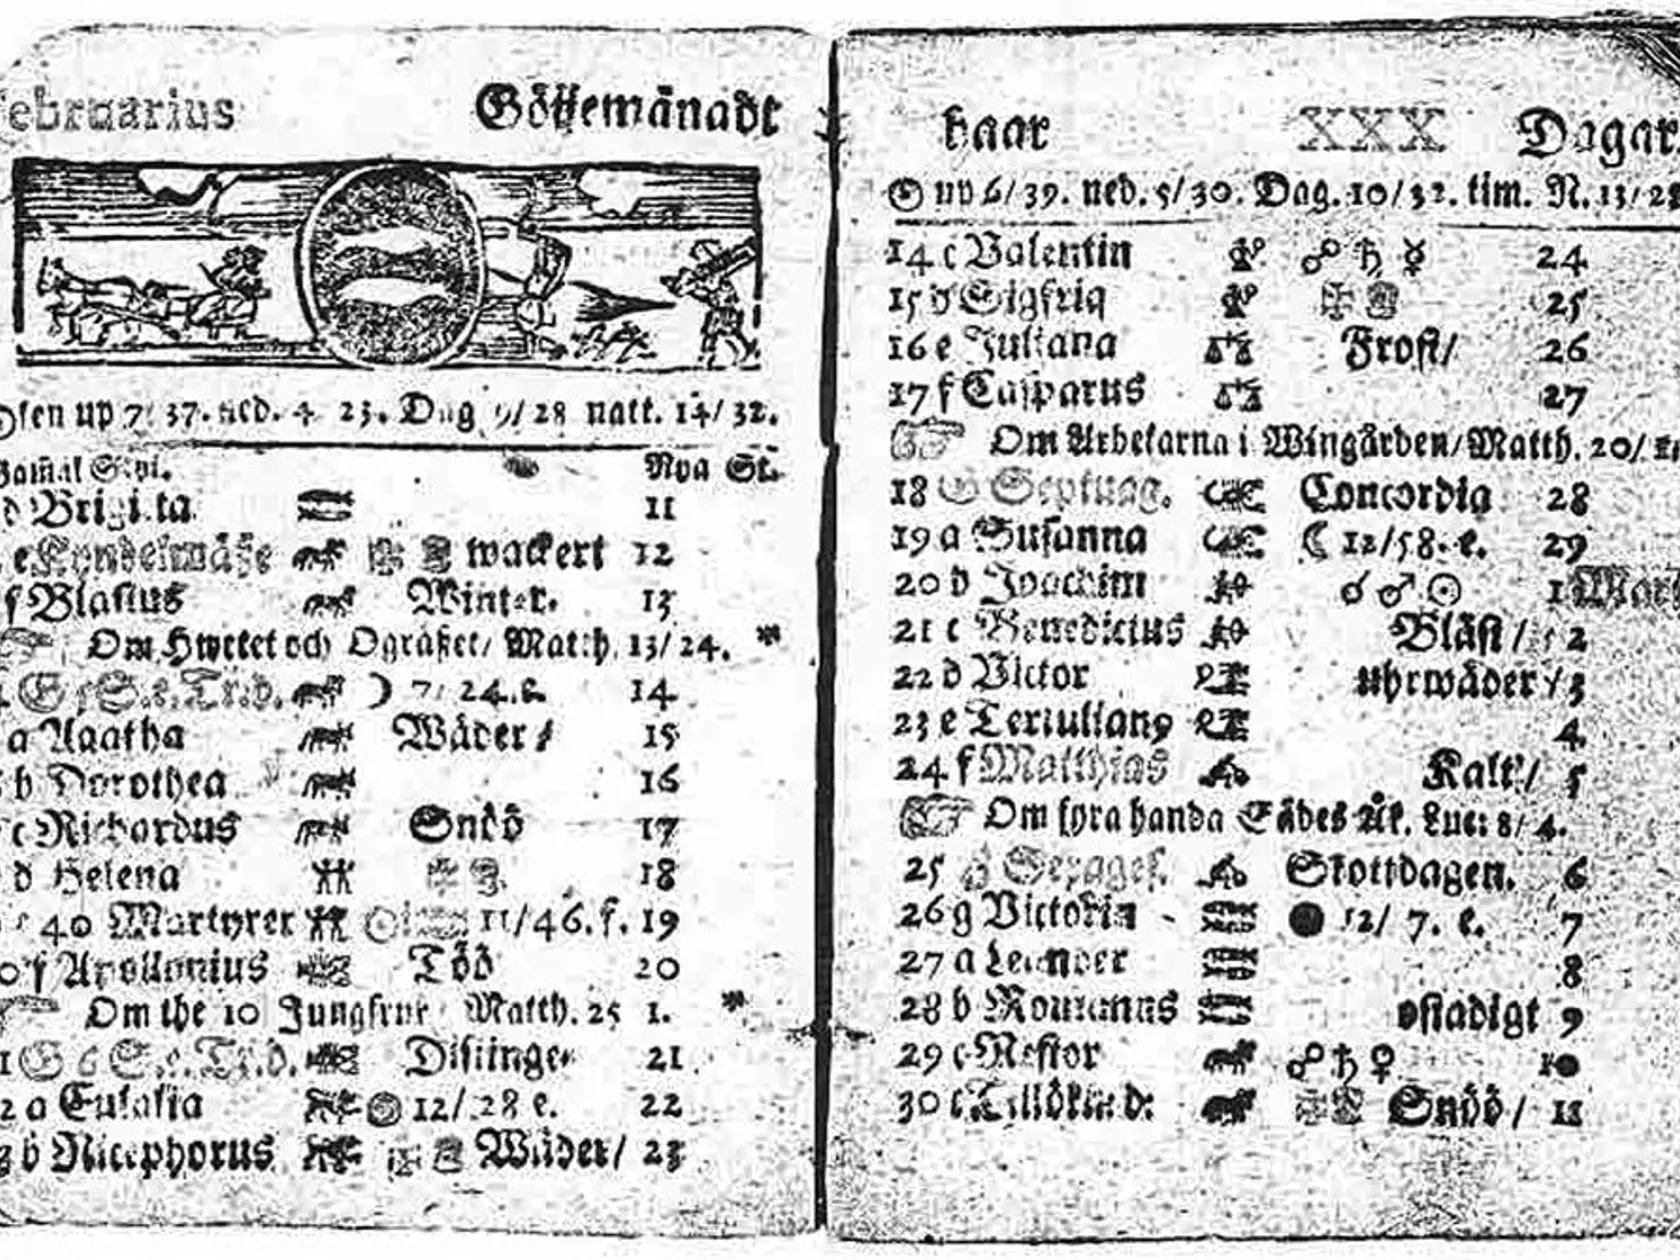 Februarius Göijemånadt
up 7/ 37. ned. 4 23. Dag 9/ 28 natt. 14/ 32.
Nya St.
d Brigitta 11
e wackert 12
f Blasius Winter. 13
Om Hwetet och Ogräset/ Matth. 13/ 24. *
☽ 7/ 24. 14
a Agatha Wäder/ 15
b Dorothea 16
c Richardus Snöö 17
d Helena 18
40 Martyrer 11/46. f. 19
f Apollonius Töö 20
Om the 10 Jungfrur Matth. 25 1. *
G 6 S. e. Tr. d. Distinge 21
a Eulalia 12/ 28 e. 22
b Nicephorus Wäder/ 23
haar XXX Dagar
☉ up 6/ 39. ned. 5/ 30. Dag. 10/ 32. tim. N. 13/
14 c Valentin ☍ ♄ ☿ 24
15 d Sigfrid 25
16 e Juliana Frost/ 26
17 f Casparus 27
Om Arbetarna i Wingården/ Matth. 20/
18 G Septuag. Concordia 28
19 a Susanna ☾ 12/58. e. 29
20 b Joachim ☌ ♂ ☉ 1
21 c Benedictus Blåst/ 2
22 d Victor uhrwäder/ 3
23 e Tertullian9 4
24 f Matthias Kalt/ 5
Om fyra handa Sädes Åk. Luc: 8/ 4.
25 G Sexages. Skottdagen. 6
26 g Victoria ● 12/ 7. e. 7
27 a Leander 8
28 b Romanus ostadigt 9
29 c Nestor ☍ ♄ ♀ 10
30 Snöö/ 11